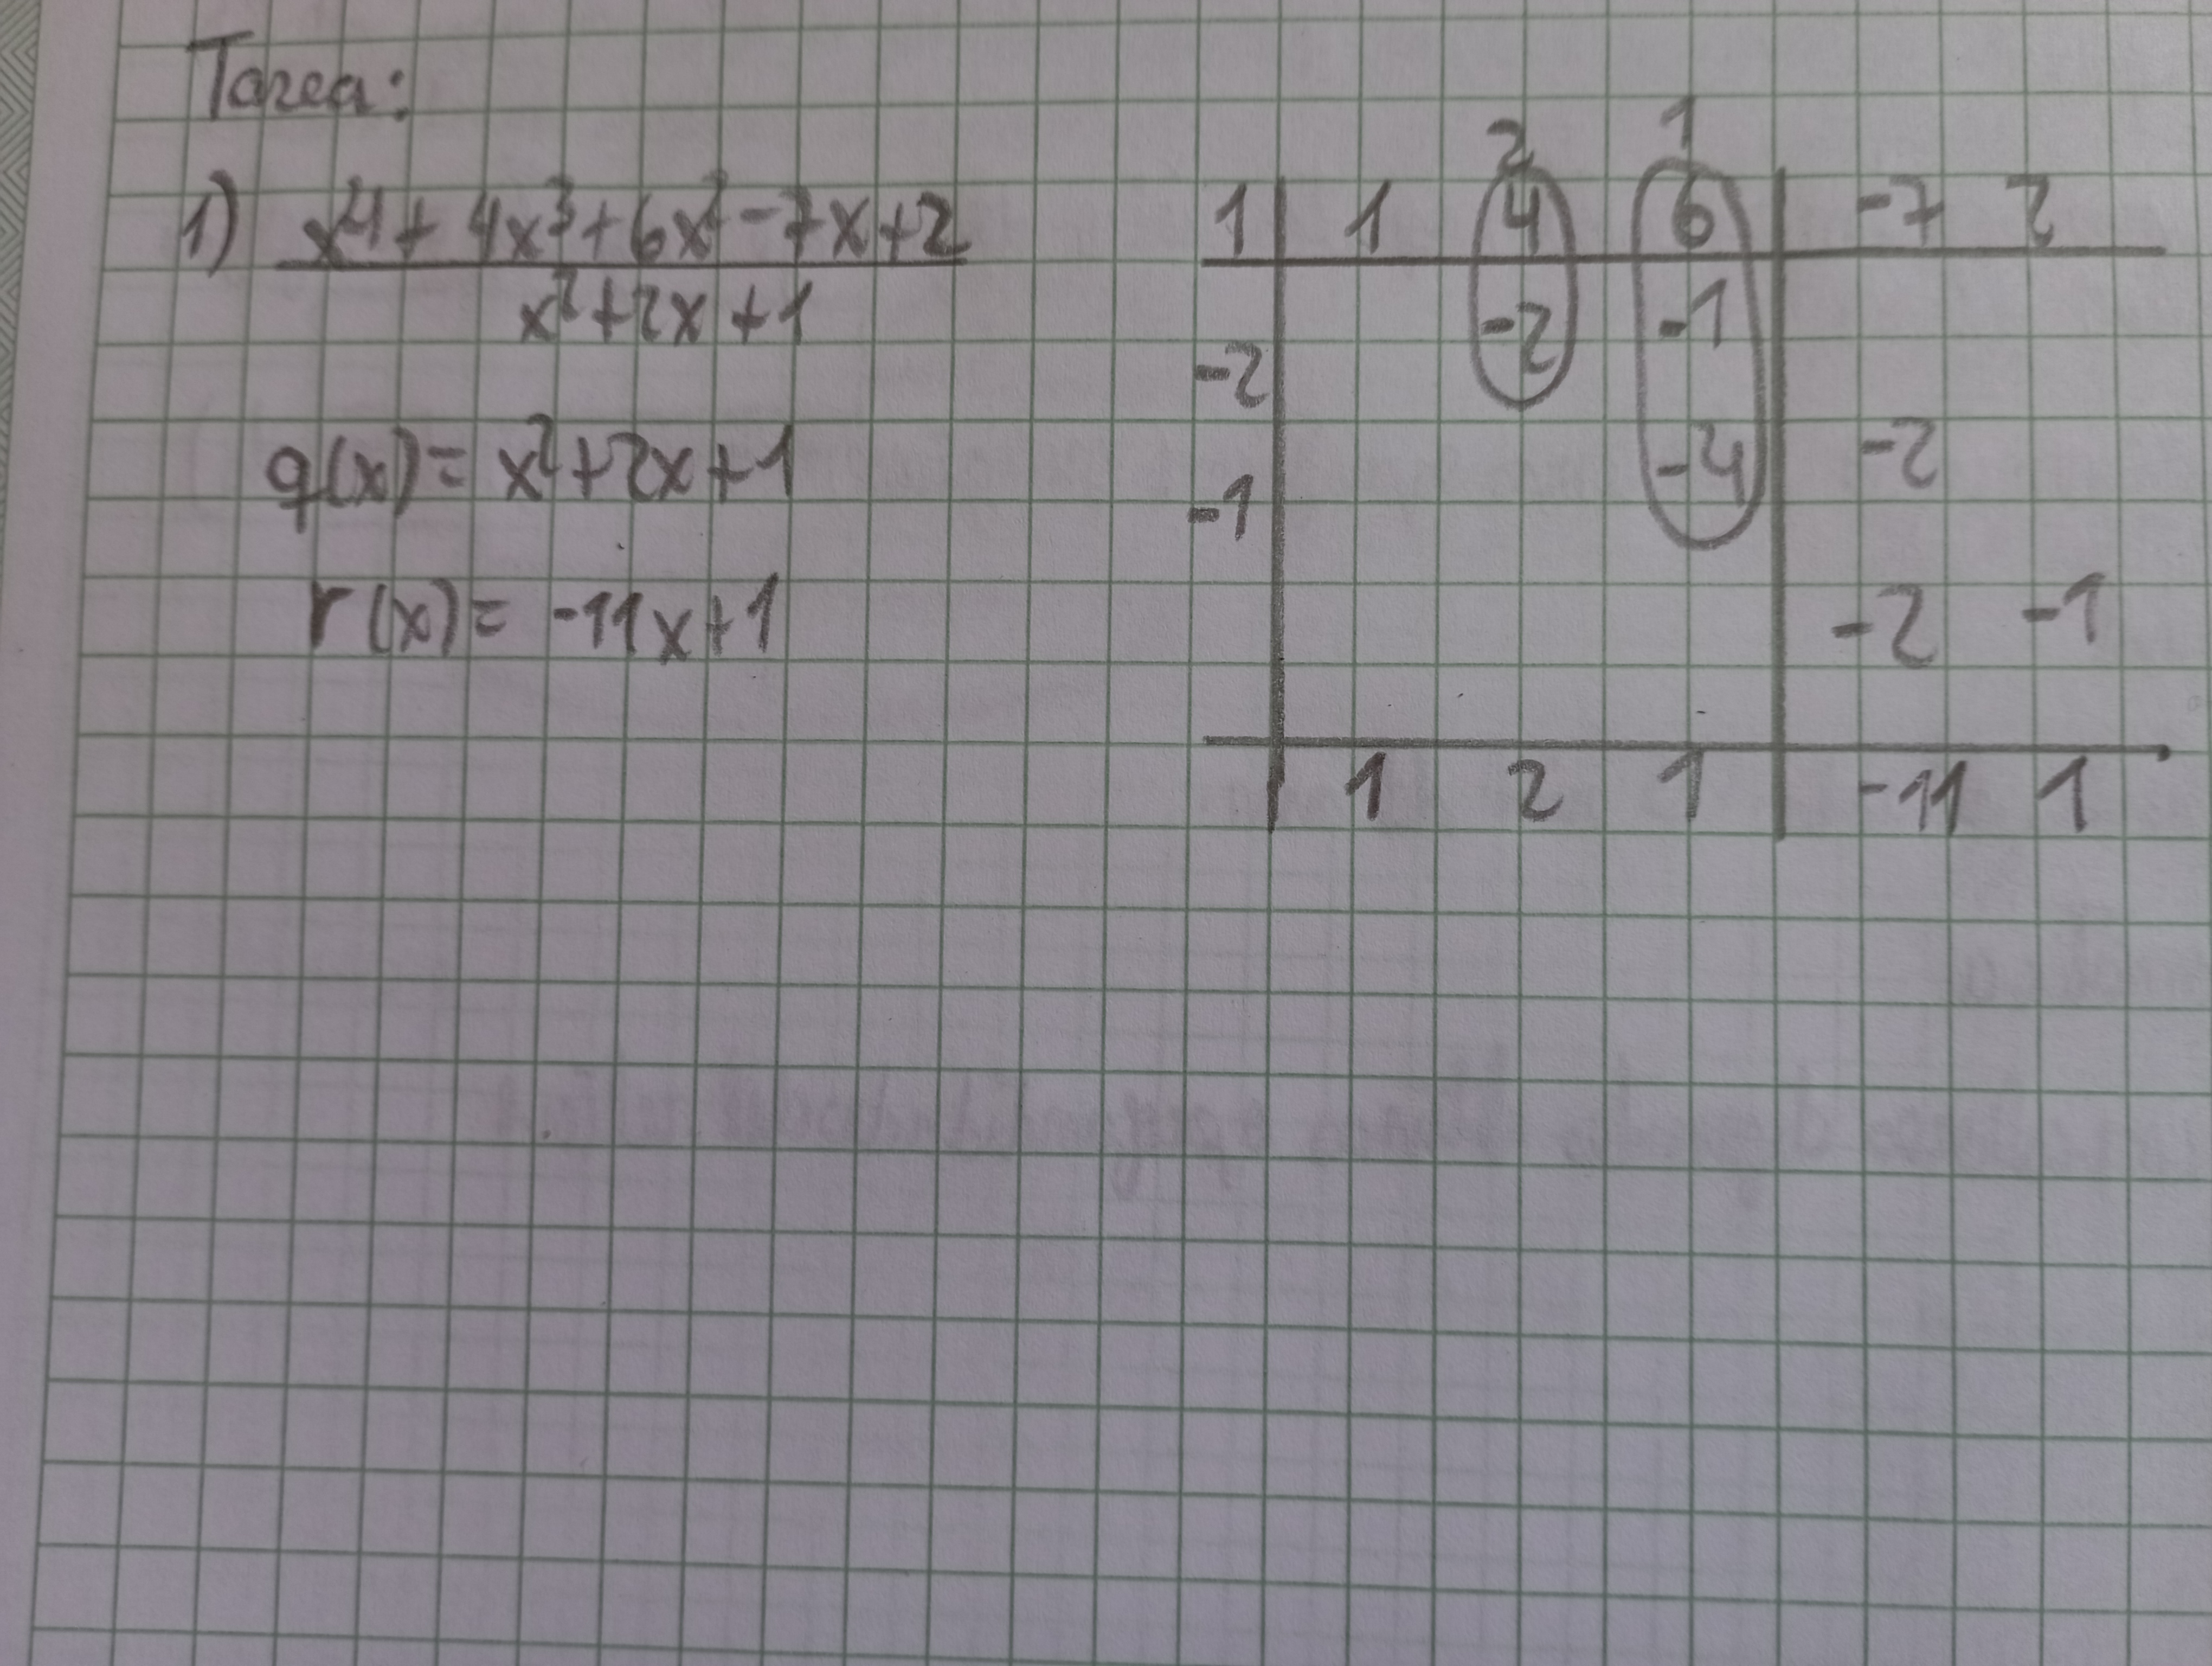 Tarea:
1) x⁴ + 4x³ + 6x² - 7x + 2
x² + 2x + 1
q(x) = x² + 2x + 1
r(x) = -11x + 1
2 1
1 1 4 6 -7 2
-2 -1
-2
-4 -2
-1
-2 -1
1 2 1 -11 1